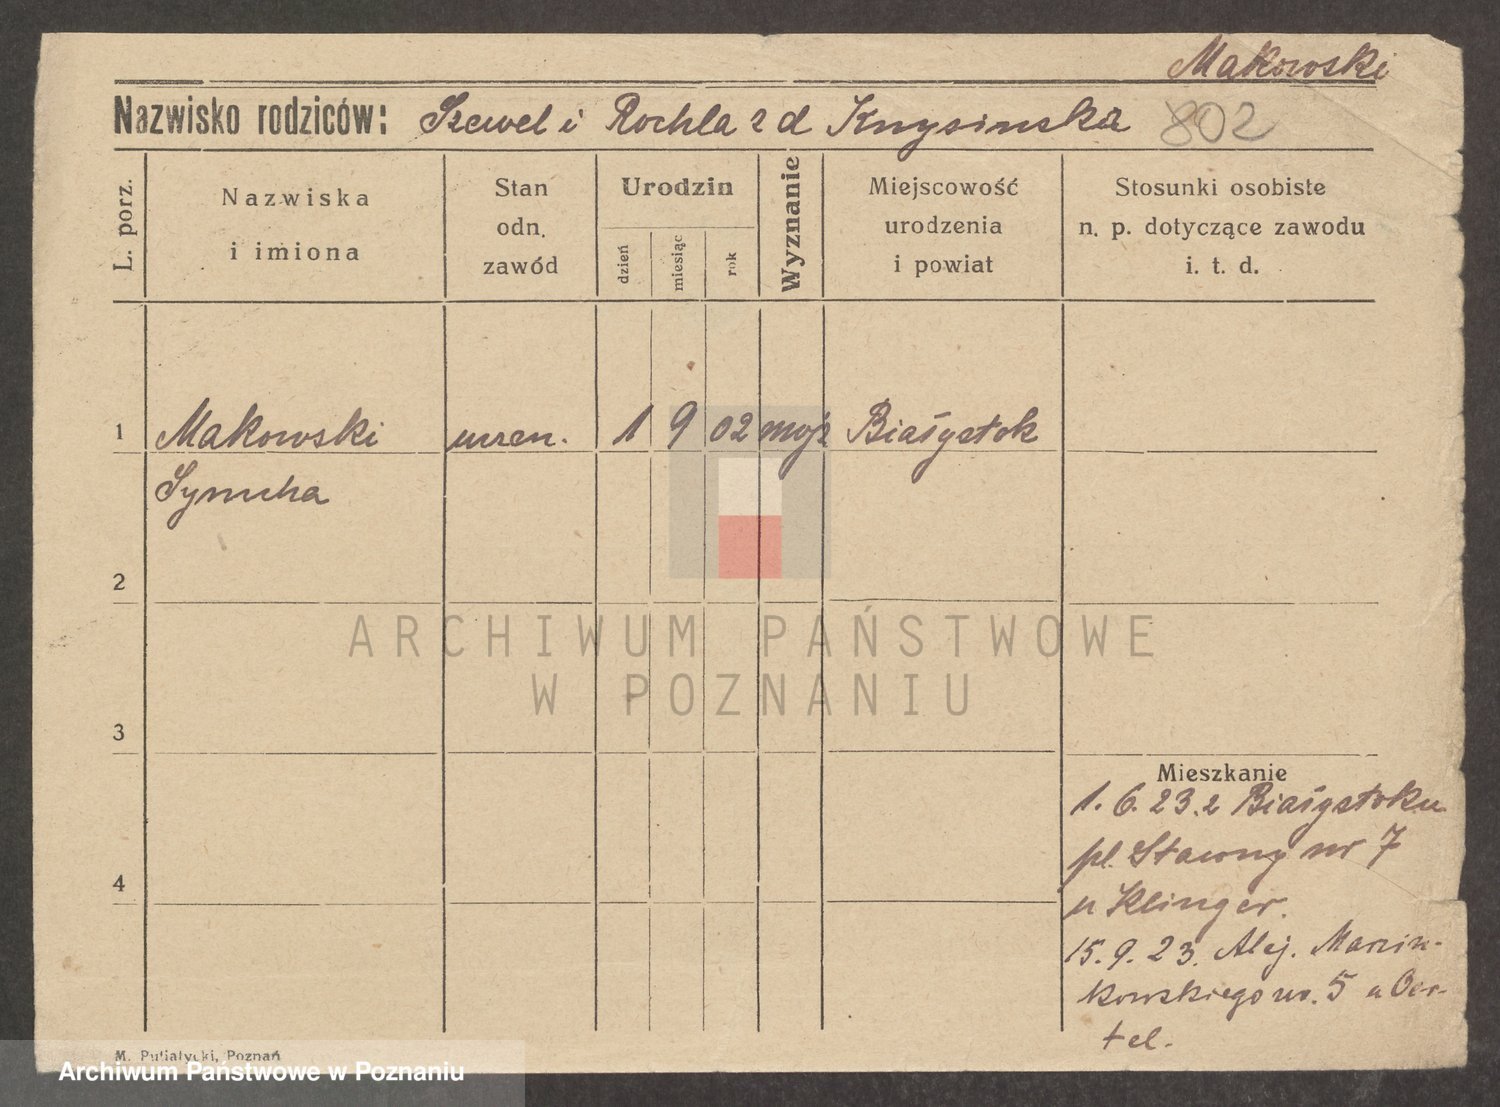 Makowski
Nazwisko rodziców: Szewel i Rochla z d Knysinska 802
L. porz.
Nazwiska
i imiona
Stan
odn.
zawód
Urodzin
dzień
miesiąc
rok
Wyznanie
Miejscowość
urodzenia
i powiat
Stosunki osobiste
n. p. dotyczące zawodu
i. t. d.
1 Makowski uczen. 1 9 02 mojż Białystok
Symcha
2
ARCHIWUM PAŃSTWOWE
W POZNANIU
3
Mieszkanie
1. 6. 23. z Białystoku
pl. Stawny nr 7
u Klinger.
4
15. 9. 23. Alej. Marcin-
kowskiego nr. 5 u Oer-
tel.
M. Putiatycki, Poznań
Archiwum Państwowe w Poznaniu